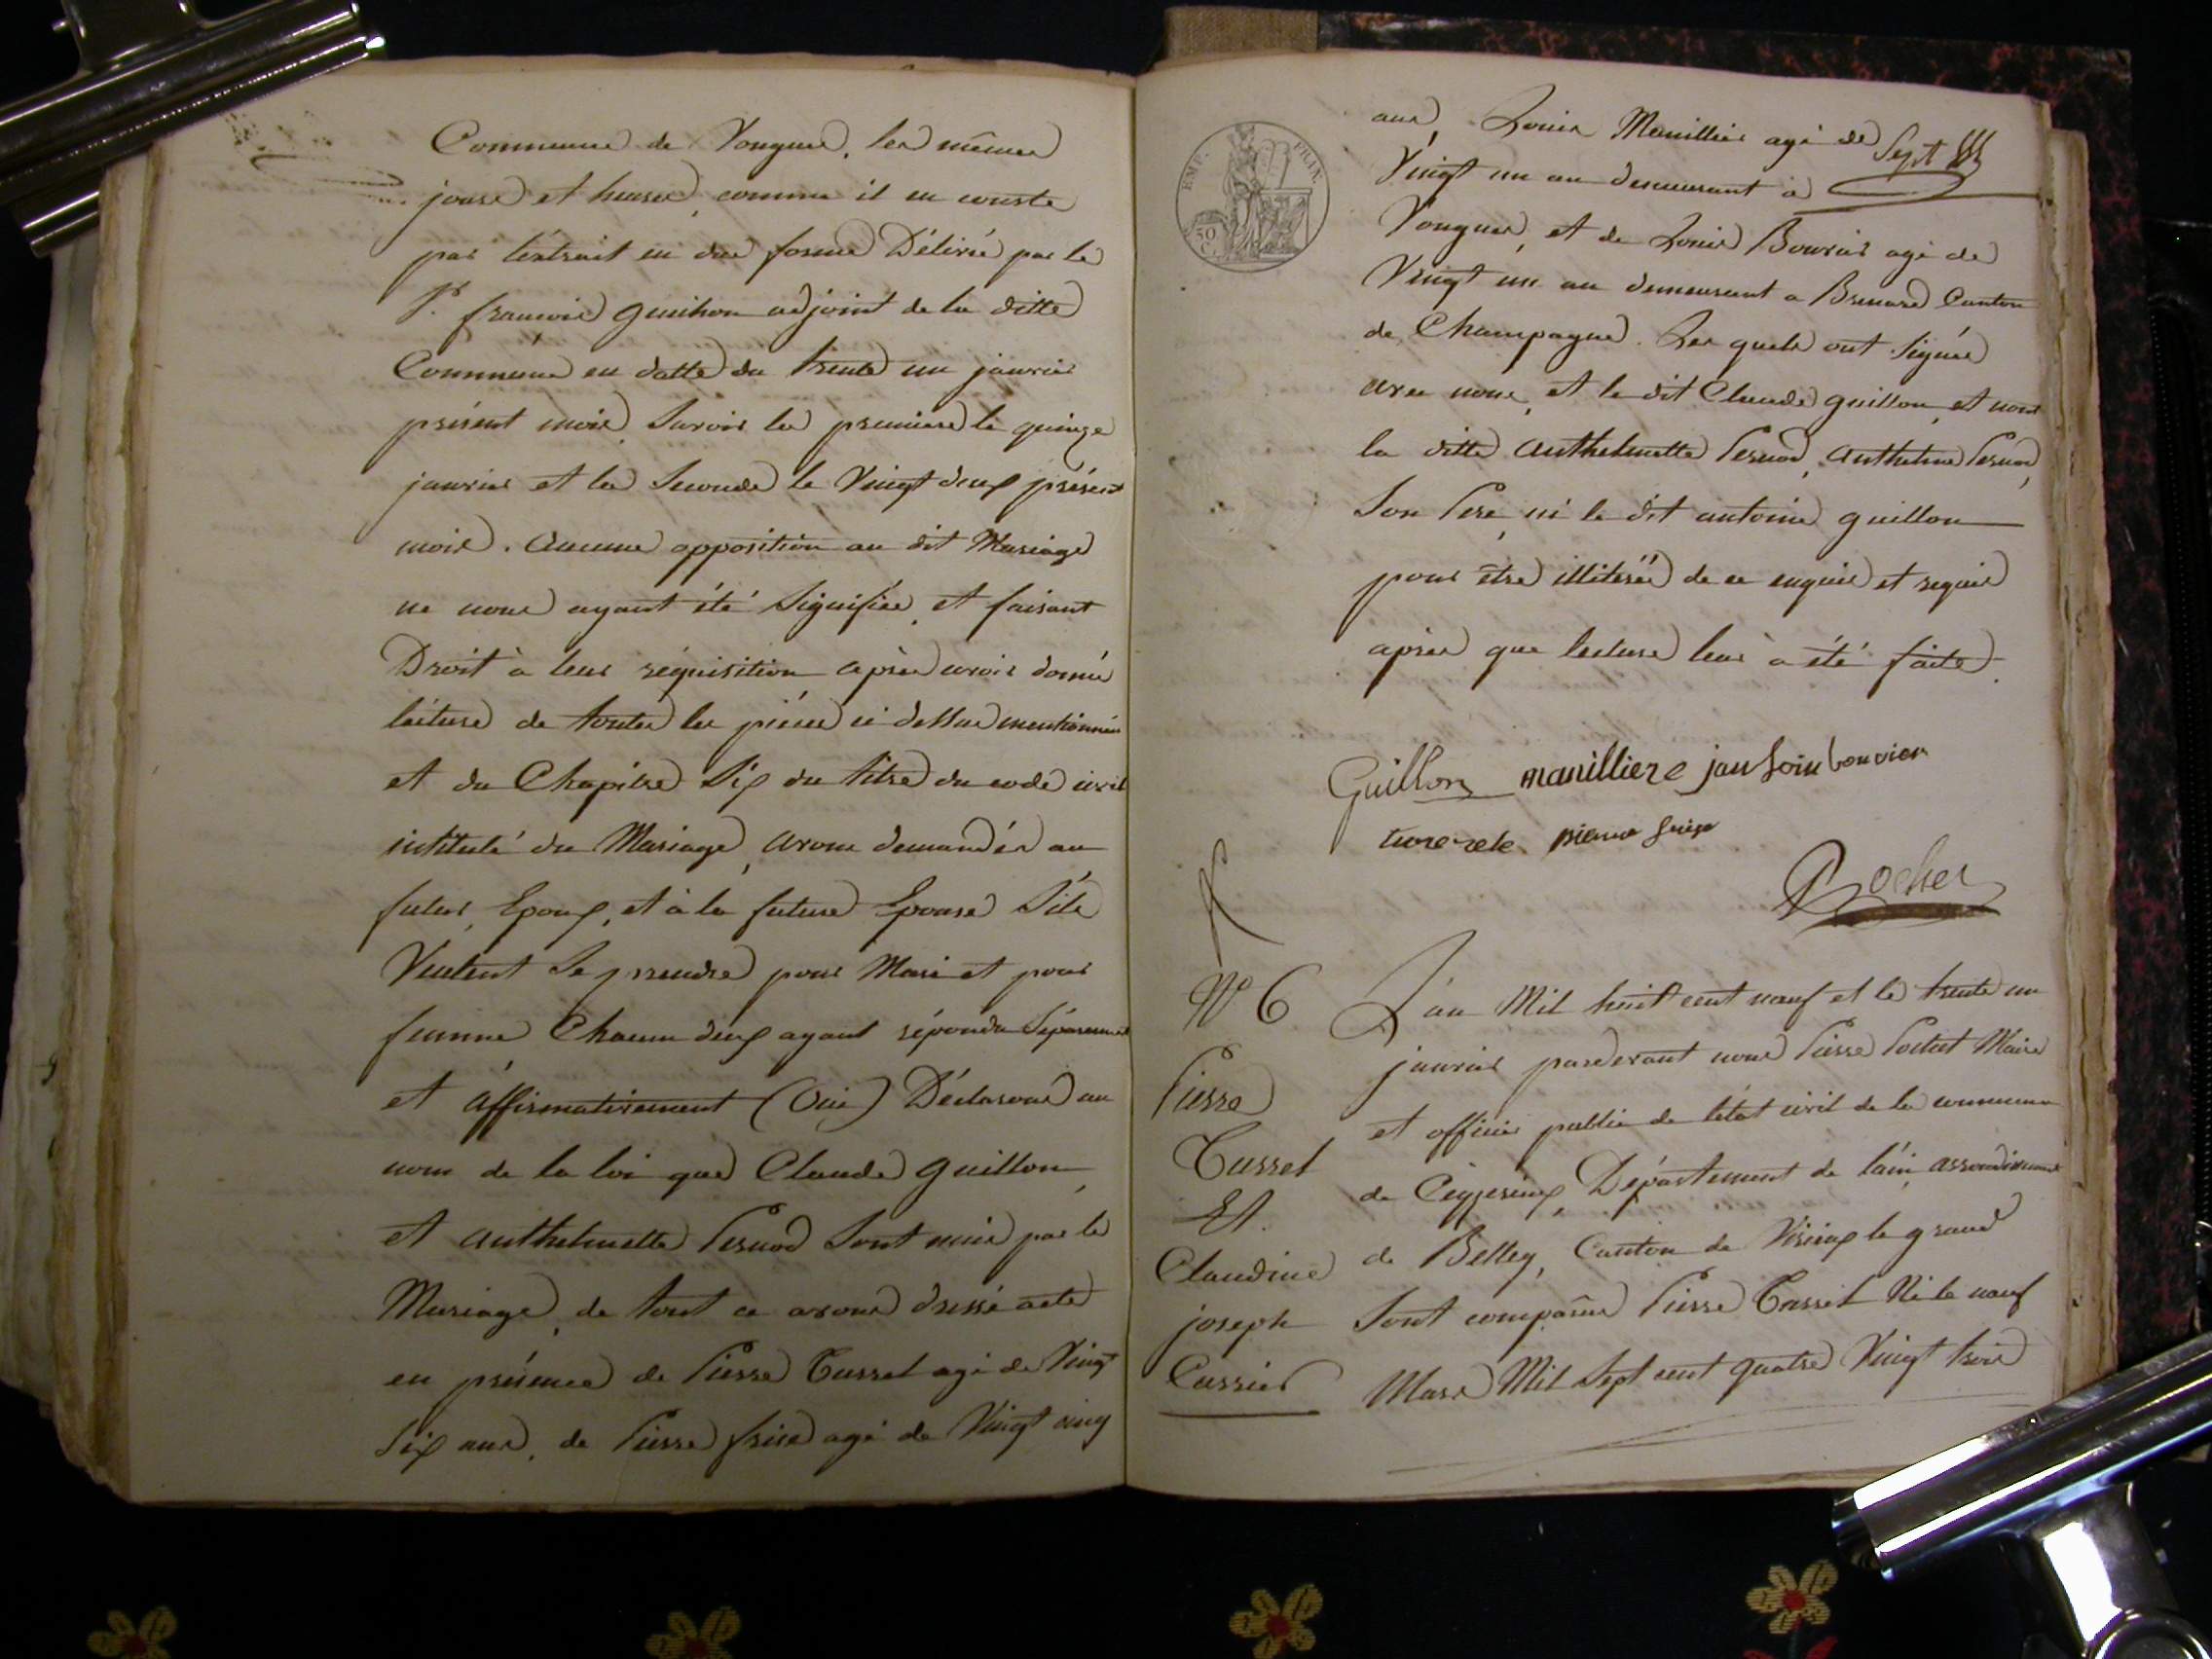 Commune de Vongnes, les mêmes
jours et heures, comme il en conste
par l'extrait en due forme Délivré par le
Sr. francois guihon adjoint de la ditte
Commune en datte du trente un janvier
présent mois, Savoir la premiere le quinze
janvier et la Seconde le Vingt deux présent
mois. Aucune opposition au dit Mariage
ne nous ayant été Signifiée, et faisant
Droit à leur réquisition après avoir donné
lécture de toutes les piéces ci dessus mentionnées
et du Chapitre Six du titre du code civil
intitulé du Mariage, avons demandés au
futur Epoux, et à la future Epouse S'ils
Veulent Se prendre pour Mari et pour
femme Chacun deux ayant répondu Séparement
et Affirmativement (Oui) Déclarons au
nom de la loi que Claude guillon,
et Anthelmette Pernod Sont unis par le
Mariage, de tout ce avons dressé acte
en présence de Pierre Cusset agé de Vingt
Six ans, de Pierre frise agé de Vingt cinq
EMP. FRAN.
50 C.
Sept
ans, Louis Manillier agé de
Vingt un an demeurant à
Vongnes, et de Louis Bouvier agé de
Vingt un an demeurant a Brenard Canton
de Champagne. Les quels ont Signés
avec nous, et le dit Claude guillon, et non
la ditte Anthelmette Pernod, Anthelme Pernod,
Son Pere, ni le dit antoine guillon
pour être illiterés de ce enquis et requis
après que lecture leur à été faite.
Guillon manilliere jean Louis bouvier
pierre
Pochet
N° 6
Pierre
Cusset
Et.
Claudine
joseph
Carrier
L'an Mil huit cent neuf et le trente un
janvier pardevant nous Pierre Pochet Maire
et officier public de l'état civil de la commune
de Ceyzerieux, Département de l'ain, arrondissement
de Belley, Canton de Virieux le grand
Sont comparus Pierre Cusset Né le neuf
Mars Mil Sept cent quatre Vingt trois